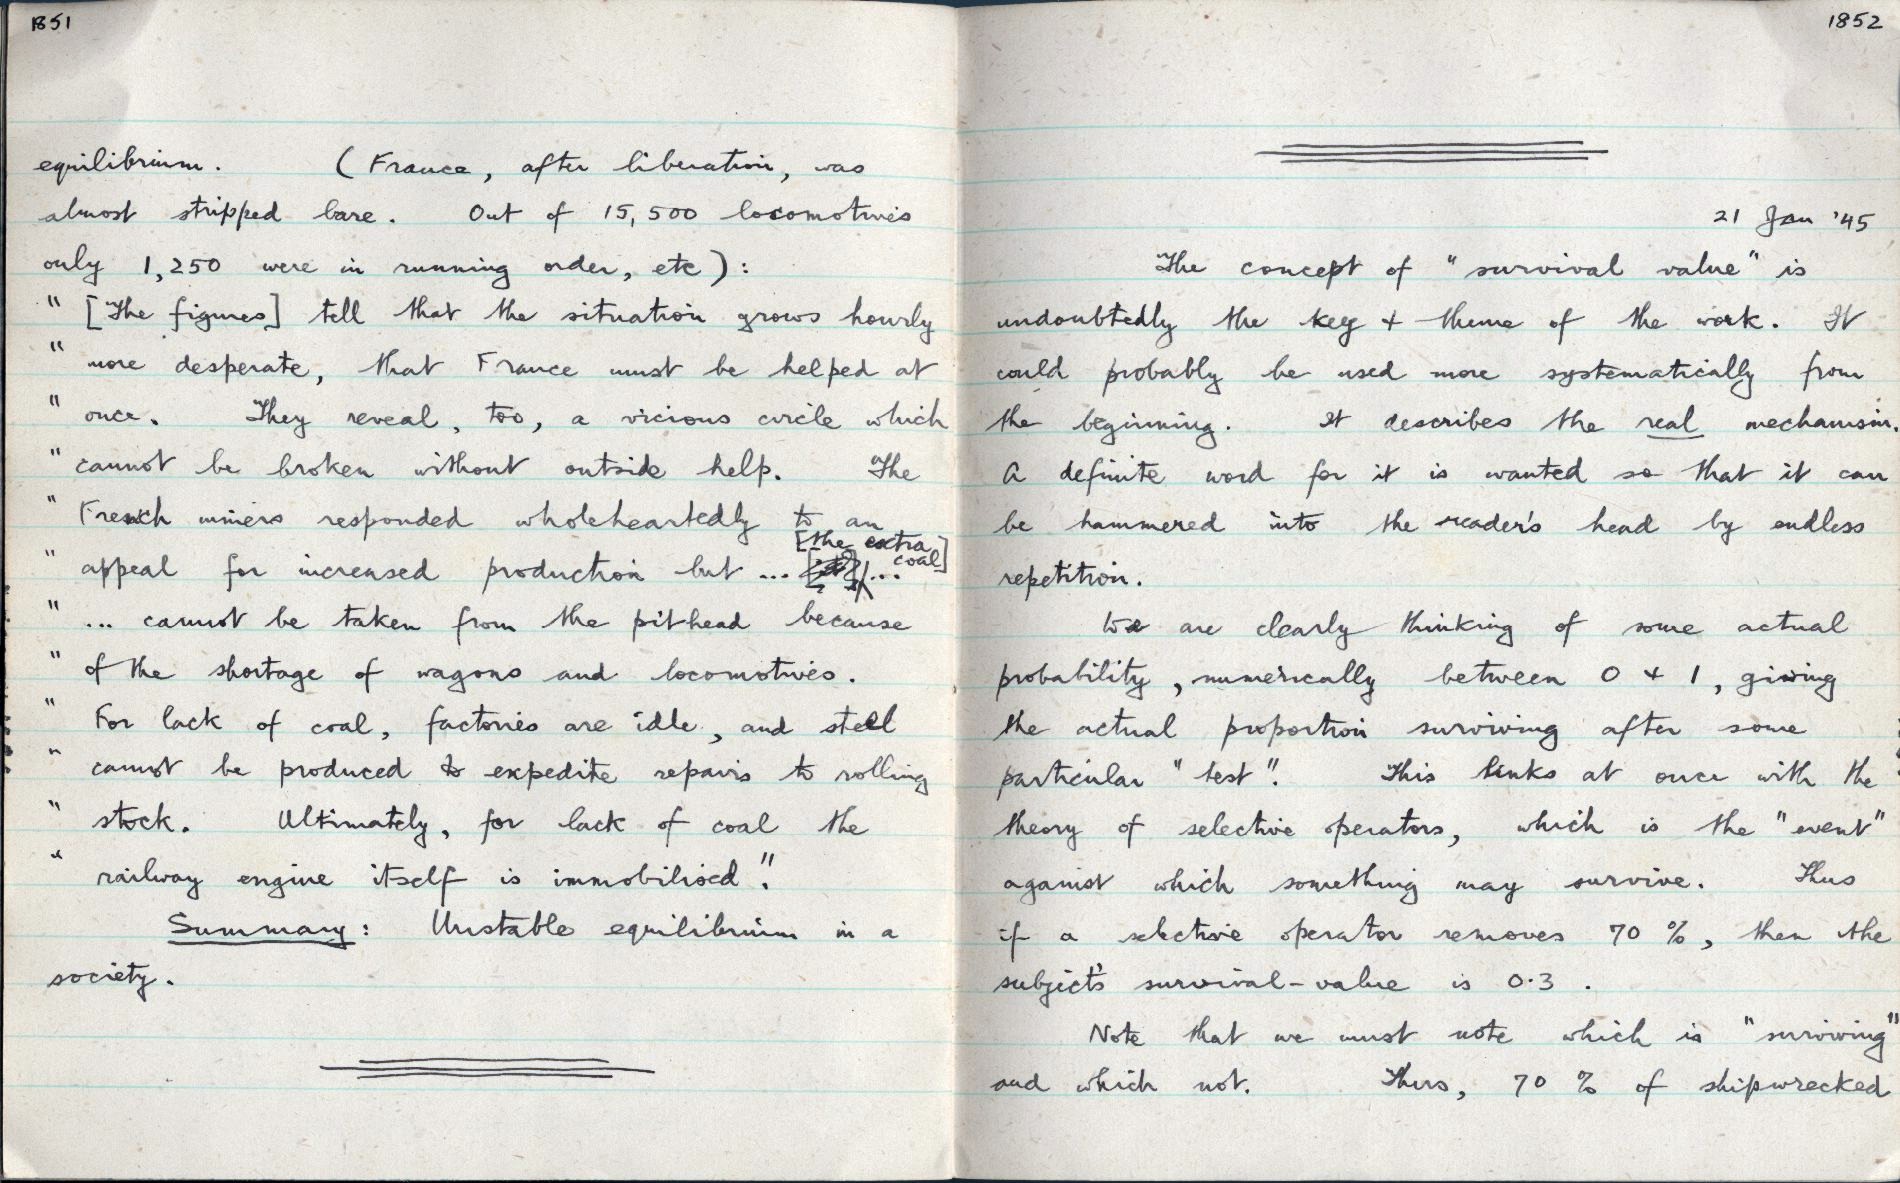 1851
equilibrium. (France, after liberation, was
almost stripped bare. Out of 15,500 locomotives
only 1,250 were in running order, etc):
" [The figures] tell that the situation grows hourly
" more desperate, that France must be helped at
" once. They reveal, too, a vicious circle which
" cannot be broken without outside help. The
" French miners responded wholeheartedly to an
[the extra coal]
" appeal for increased production but ... ...
" ... cannot be taken from the pit-head because
" of the shortage of wagons and locomotives.
" For lack of coal, factories are idle, and steel
" cannot be produced to expedite repairs to rolling
" stock. Ultimately, for lack of coal the
" railway engine itself is immobilised".
Summary: Unstable equilibrium in a
society.
1852
21 Jan '45
The concept of "survival value" is
undoubtedly the key + theme of the work. It
could probably be used more systematically from
the beginning. It describes the real mechanism.
A definite word for it is wanted so that it can
be hammered into the reader's head by endless
repetition.
We are clearly thinking of some actual
probability, numerically between 0 + 1, giving
the actual proportion surviving after some
particular "test". This links at once with the
theory of selective operators, which is the "event"
against which something may survive. Thus
if a selective operator removes 70 %, then the
subject's survival-value is 0.3 .
Note that we must note which is "surviving"
and which not. Thus, 70 % of shipwrecked